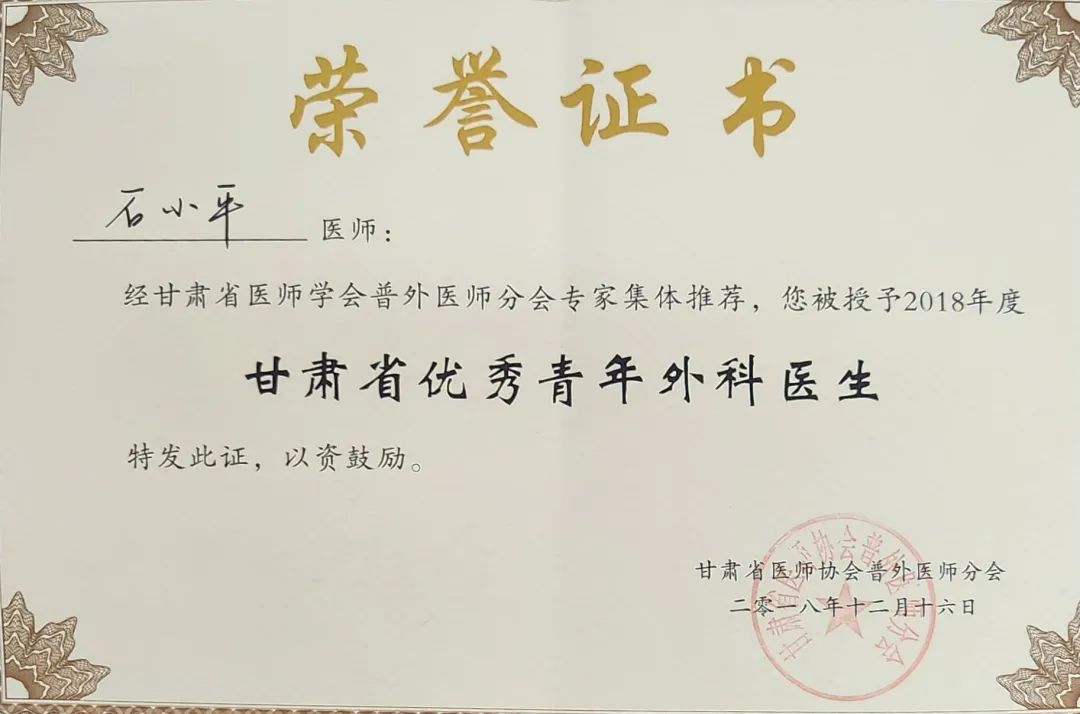 荣誉证书
石小平 医师：
经甘肃省医师学会普外医师分会专家集体推荐，您被授予2018年度
甘肃省优秀青年外科医生
特发此证，以资鼓励。
甘肃省医师协会普外医师分会
二零一八年十二月十六日
甘肃省医师协会普外医师分会